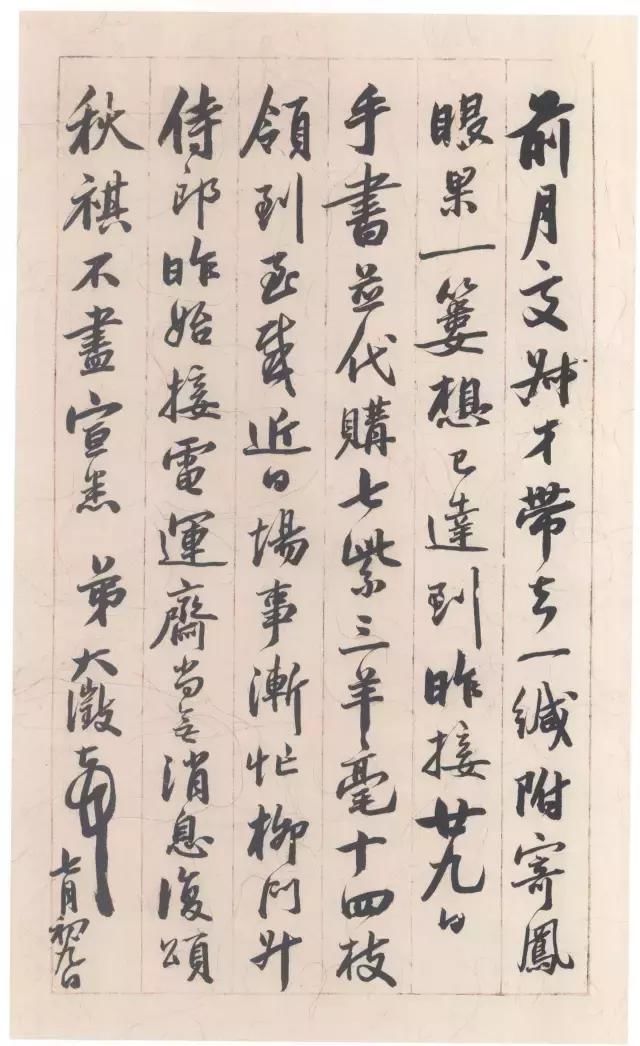 前月交叔才帶去一緘附寄鳳
眼果一簍想已達到昨接廿九日
手書並代購七紫三羊毫十四枝
領到至感近日場事漸忙柳门升
侍郎昨始接電運齋尚无消息復頌
秋祺不盡宣悉 弟大澂頓首
七月初九日